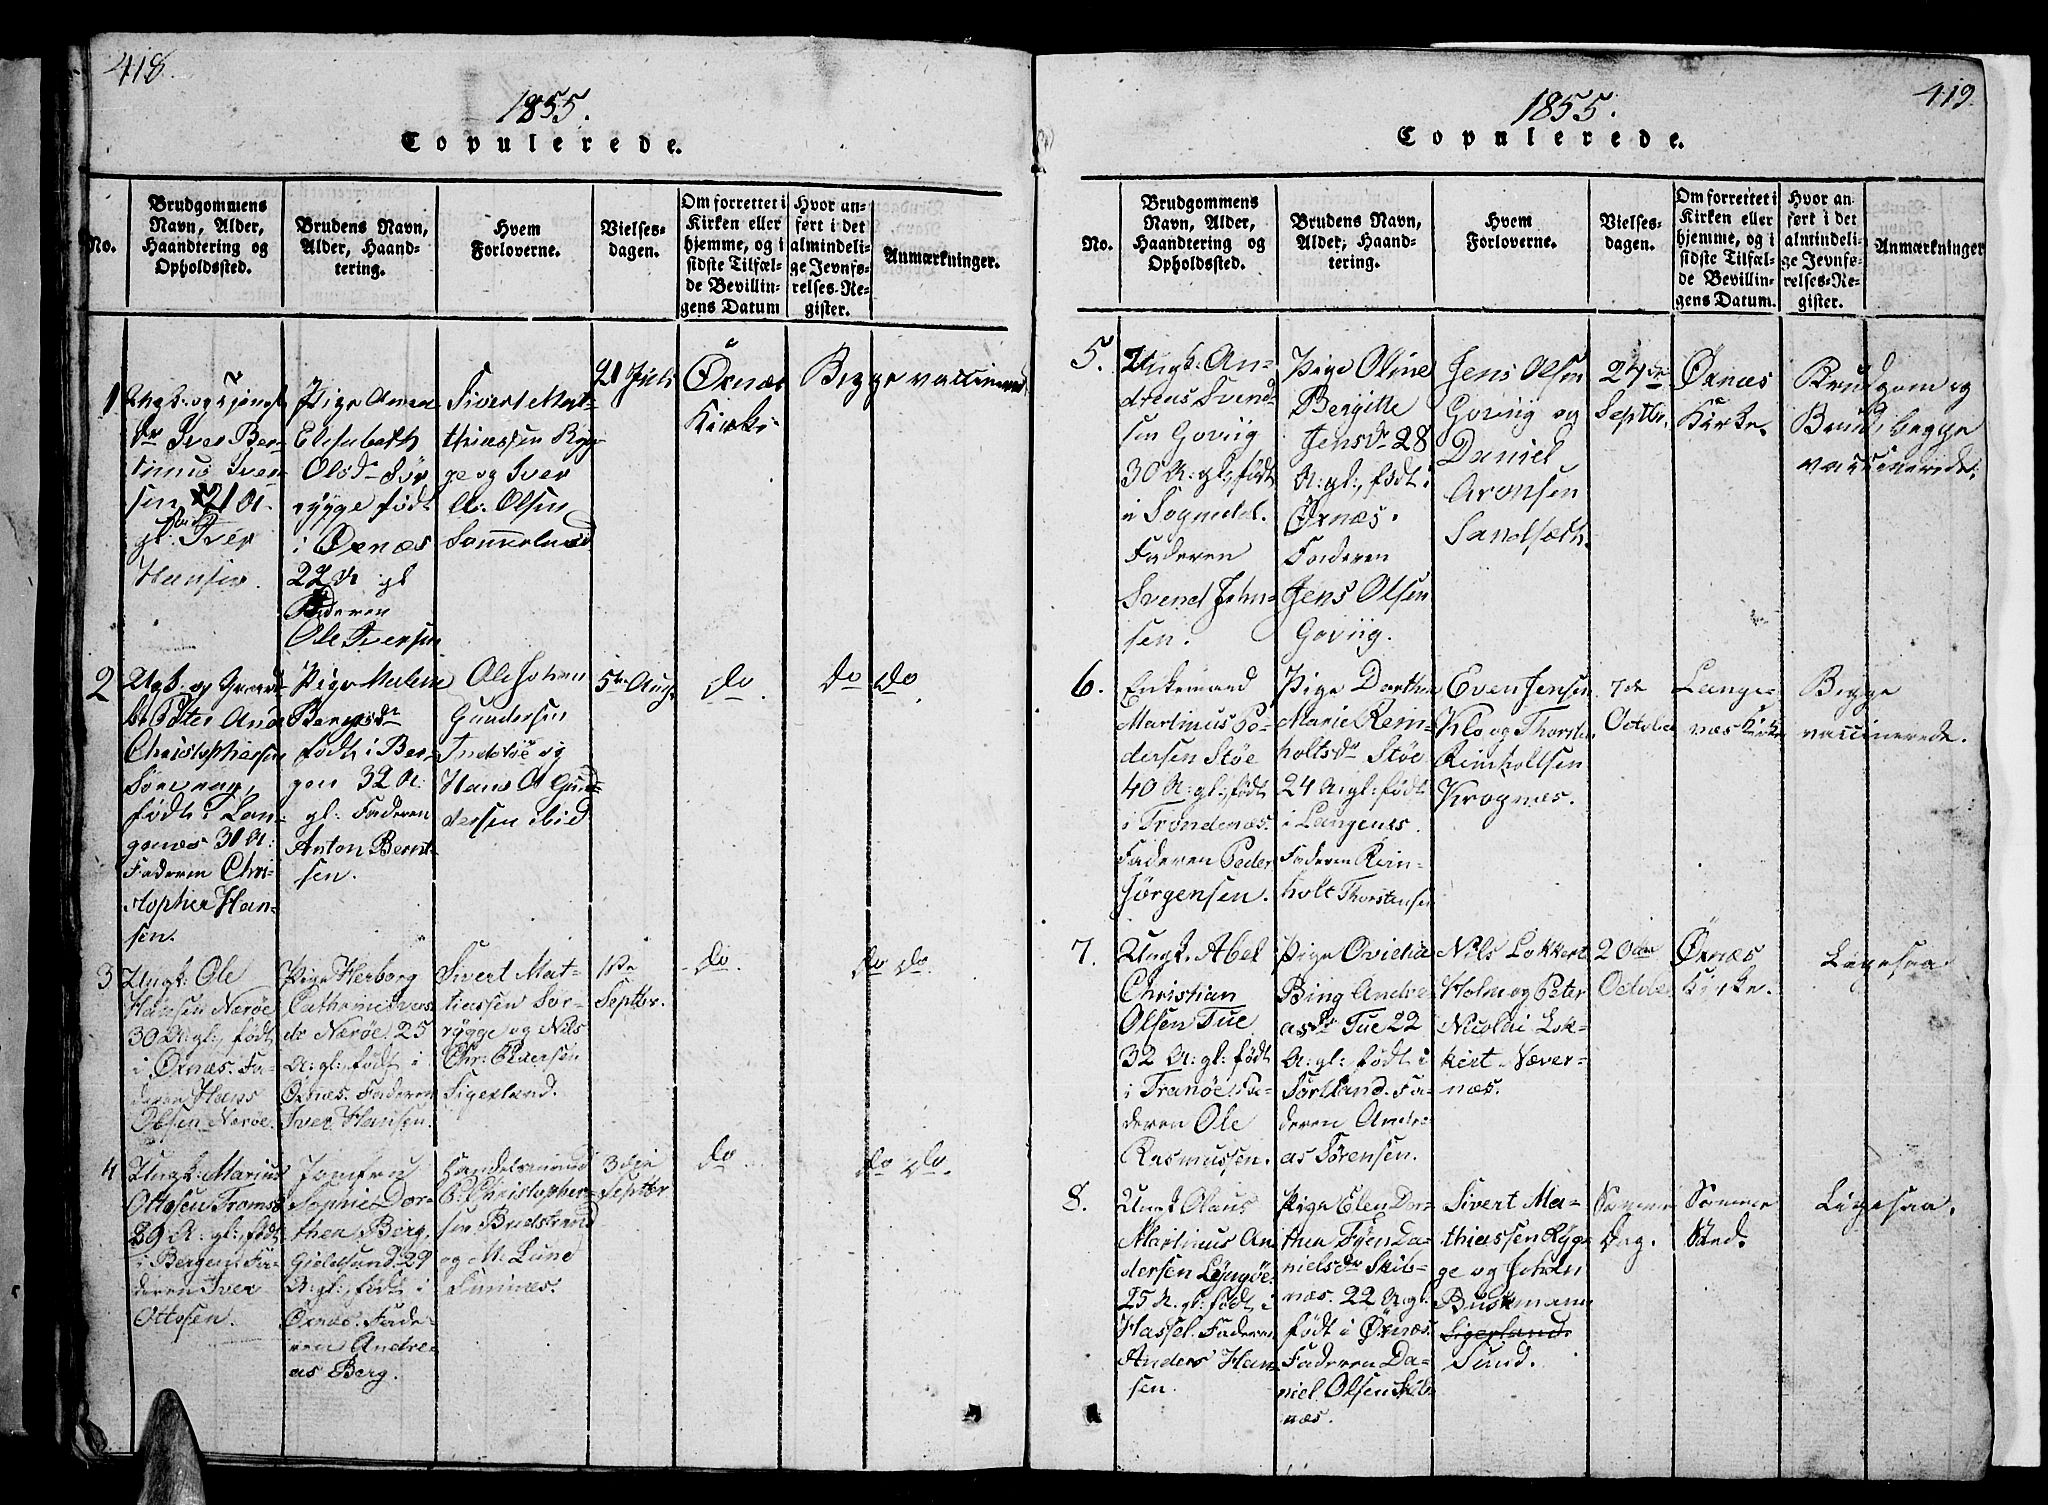 418.
1855.
Copulerede.
No.
Brudgommens
Navn, Alder,
Haandtering og
Opholdssted.
Brudens Navn,
Alder, Haand-
tering.
Hvem
Forloverne.
Vielses-
dagen.
Om forrettet i
Kirken eller
hjemme, og i
sidste Tilfæl-
de Bevillin-
gens Datum
Hvor an-
ført i det
almindeli-
ge Jevnfø-
relses-Re-
gister.
Anmærkninger.
1
Ungk: og
Iver Ber-
tinus Iver-
sen 21 A.
gl: Iver
Hansen.
Pige Anna
Elisabeth
Olsdr Sør
rygge født
i Øxnæs
22 A gl
Faderen
Ole Iversen
Sivert Mat-
thiassen Ryg-
ge og Iver
A: Olsen
21 Juli
Øxnæs
Kirke
Begge vaccinered
2
Ugk: og
Peter
Christophersen
født i Lan-
genæs 31 A:
Faderen Chri-
stopher Han-
sen.
Pige Malene
Berntsdr
født i Ber-
gen 32 A:
gl: Faderen
Anton Bernt-
sen.
Ole Johan
Gundersen
og
Hans A Gun-
dersen ibid
5te Aug:
do
do do
3
Ungk: Ole
Hansen Nærøe
30 A: gl:, født
i Øxnæs. Fa-
deren Hans
Olsen Nærøe.
Pige Herborg
Cathrine Ivers
dr Nærøe 25
A: gl: født i
Øxnæs. Faderen
Iver Hansen.
Sivert Mat-
tiassen Sør-
rygge og Nils
Chr: Pedersen
Sigerland.
1ste
Septbr.
do.
do do.
4
Ungk: Marius
Ottosen Tromsø
29 A: gl:, født
i Bergen Fa-
deren Iver
Ottosen.
Jomfru
Sophie Dor-
thea Berg,
Gieldsund 29
A: gl:, født i
Øxnæs. Fade-
ren Andre-
as Berg.
Handelsmand
P: Christopher-
sen Brudstrand
og M. Lund
3die
Septbr
do
do do.
419.
1855.
Copulerede.
No.
Brudgommens
Navn, Alder,
Haandtering og
Opholdssted.
Brudens Navn,
Alder, Haand-
tering.
Hvem
Forloverne.
Vielses-
dagen.
Om forrettet i
Kirken eller
hjemme, og i
sidste Tilfæl-
de Bevillin-
gens Datum.
Hvor an-
ført i det
almindeli-
ge Jevnfø-
relses-Re-
gister.
Anmærkninger
5.
Ungk: An-
dreas Svend-
sen Goviig
30 A: gl:, født
i Sogndal.
Faderen
Svend John-
sen.
Pige Oline
Bergitte
Jensdr 28
A: gl:, født i
Øxnæs.
Faderen
Jens Olsen
Goviig.
Jens Olsen
Goviig og
Daniel
Aronsen
Sandsæth.
24de
Septbr.
Øxnæs
Kirke.
Brudgom og
Brud, begge
vaccinerede.
6.
Enkemand
Martinus Pe-
dersen Støe
40 A: gl:, født
i Trondenæs.
Faderen Peder
Jørgensen.
Pige Dorthea
Marie Rein-
holtsdr Støe
24 A: gl: født
i Langenes.
Faderen Rein-
holt Thorstensen
Even Jensen
Klo og Thorsten
Reinholtsen
Krognæs.
7de
October
Lange-
næs Kirke
Begge
vaccinerede.
7.
Ungk. Abel
Christian
Olsen Tue
32 A: gl: født
i Tranøe. Fa-
deren Ole
Rasmussen.
Pige Ovidia
Bing Andre-
asdr Tue 22
A: gl: født i
Sortland. Fa-
deren Andre-
as Sørensen.
Nils Lokkert
Holm og Peter
Nicolai Lok-
kert Næver-
næs.
20de
October
Øxnæs
Kirke.
Ligesaa
8.
Ungk Olaus
Martinus An
dersen Lyngøe.
25 A. gl: født i
Hassel. Faderen
Anders Han-
sen.
Pige Elen Dor-
thea Fyen Da-
nielsdr Skib-
næs. 22 A gl:
født i Øxnæs.
Faderen Da-
niel Olsen Skib
næs.
Sivert Ma-
thiassen Ryg-
ge og Johan
Buschmann
Sigerland.
Sund.
Samme
Dag.
Samme
Sted.
Ligesaa.